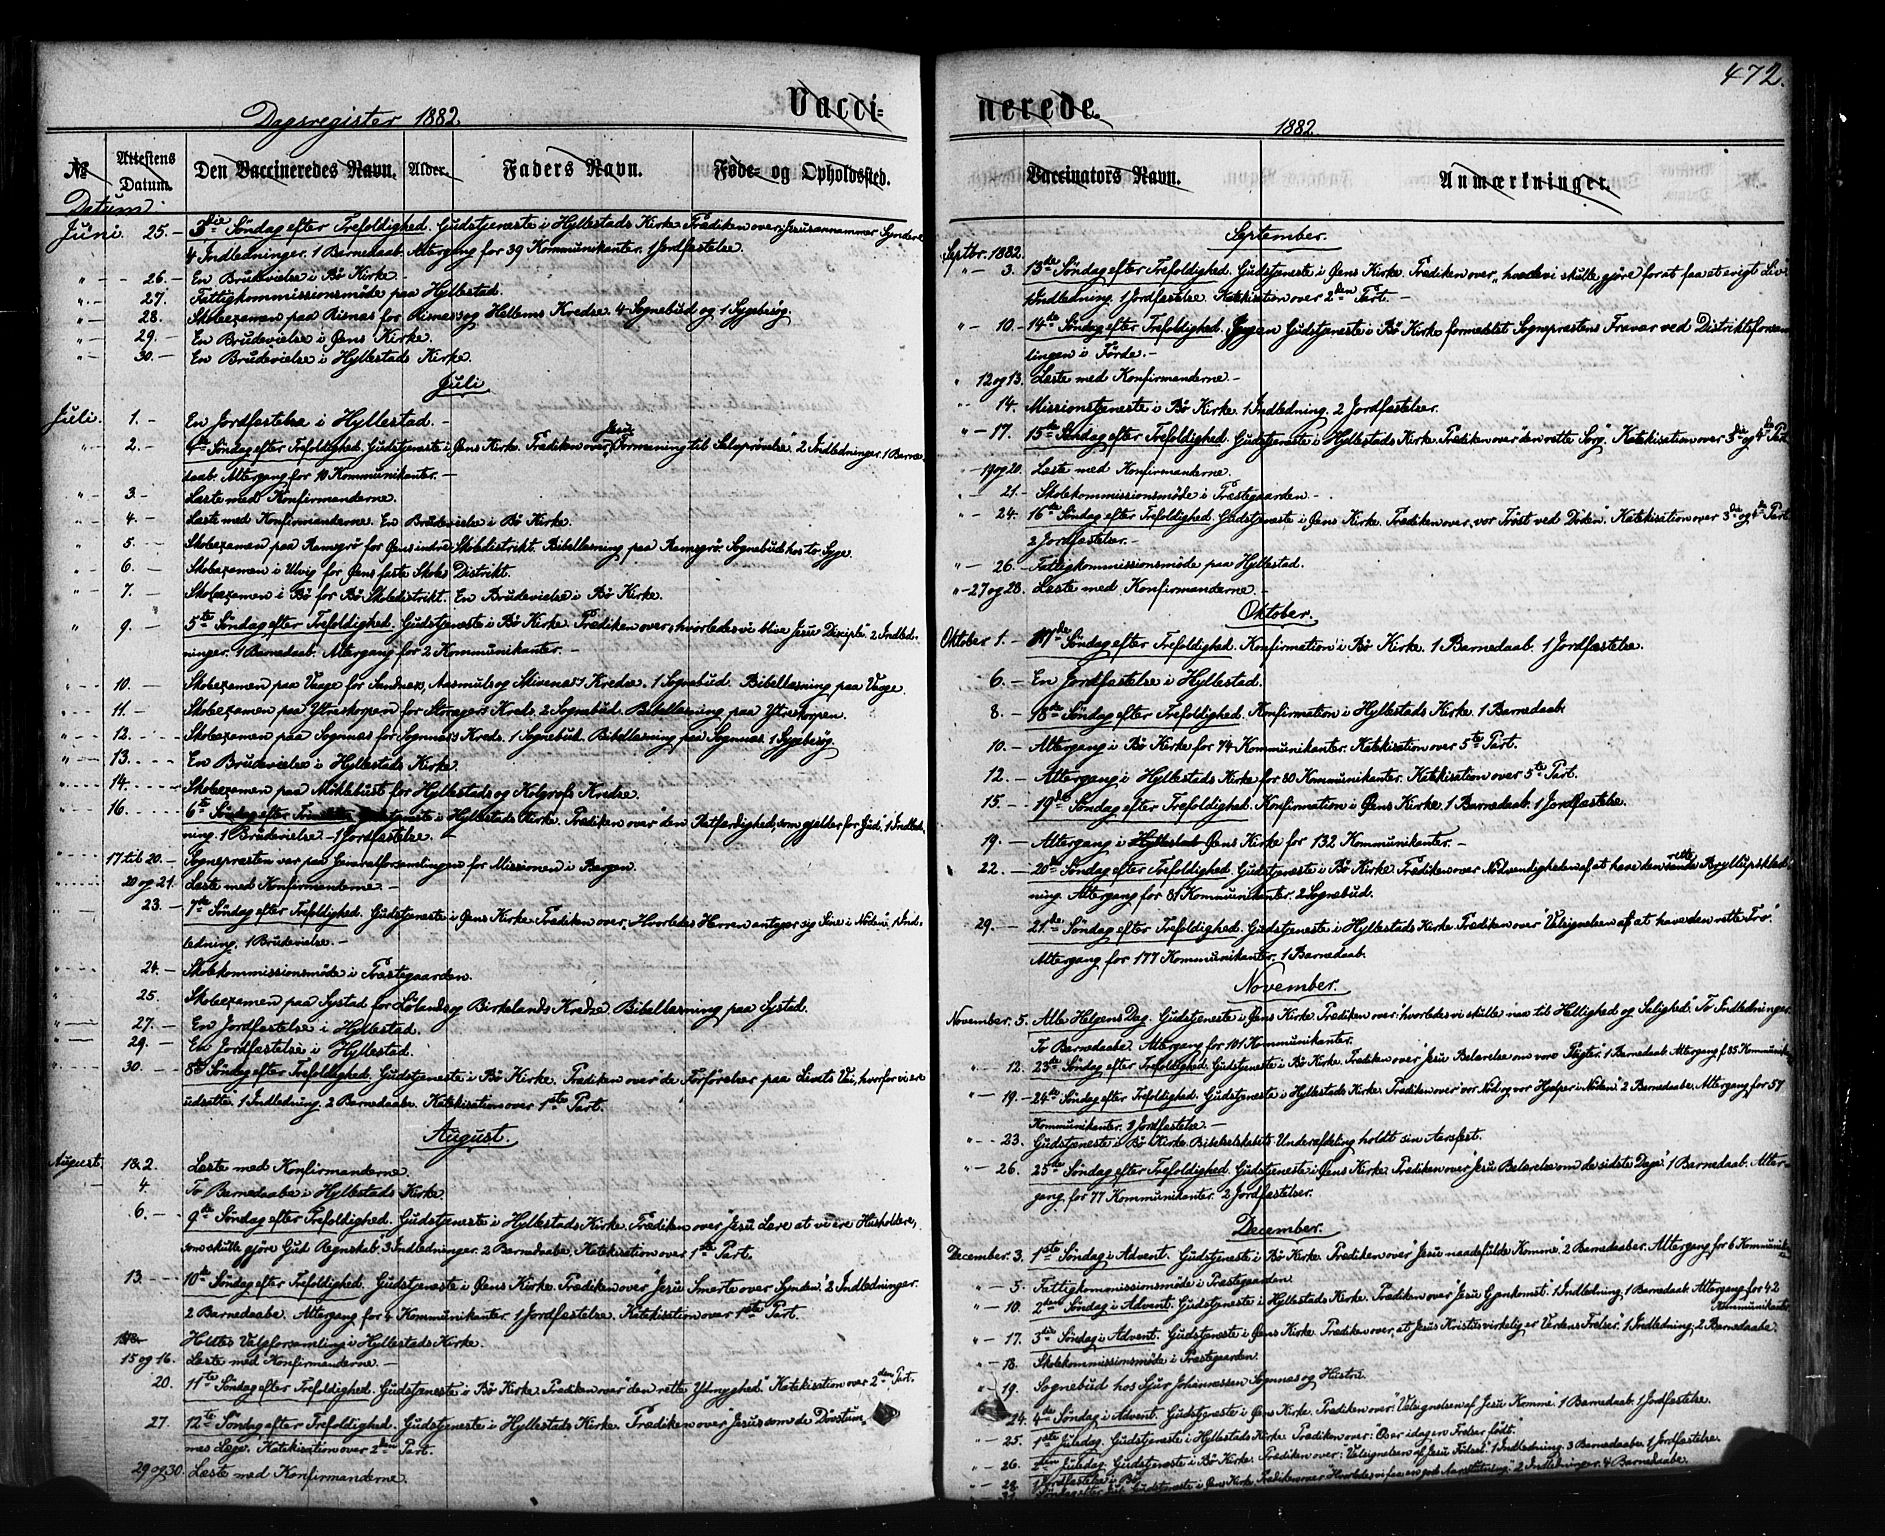 Dagsregister 1882.
Vacci=
№
Attestens Datum.
Den Vaccineredes Navn.
Alder.
Faders Navn.
Føde= og Opholdssted.
Datum.
Juni 25. - 3die Søndag efter Trefoldighed. Gudstjeneste i Hyllestads Kirke. Prædiken over: Jesus annammer Syndere.
4 Indledninger. 1 Barnedaab. Altergang for 39 Kommunikanter. 1 Jordfæstelse.
" - 26. - En Brudevielse i Bø Kirke.
" - 27. - Fattigkommissionsmøde paa Hyllestad.
" - 28. - Skoleexamen paa Risnæs for Risnæs og Hellems Kredse. 4 Sognebud og 1 Sygebesøg.
" - 29. - En Brudevielse i Øens Kirke.
" - 30. - En Brudevielse i Hyllestads Kirke.
Juli
Juli. 1. - En Jordfæstelse i Hyllestad. -
" - 2. - 4de Søndag efter Trefoldighed. Gudstjeneste i Øens Kirke. Prædiken over "Jesu Formaning til Selvprøvelse." 2 Indledninger. 1 Barne-
daab. Altergang for 10 Kommunikanter. -
" - 3. - Læste med Konfirmanderne.
" - 4. - Læste med Konfirmanderne. En Brudevielse i Bø Kirke.
" 5. - Skoleexamen paa Ramsgrø for Øens indre Skoledistrikt. Bibellæsning paa Ramsgrø. Sognebud hos to Syge.
" - 6. - Skoleexamen i Ulvig for Øens faste Skoles Distrikt.
" - 7. - Skoleexamen i Bø for Bø Skoledistrikt. En Brudevielse i Bø Kirke.
" 9. - 5te Søndag efter Trefoldighed. Gudstjeneste i Bø Kirke. Prædiken over "hvorledes vi blive Jesu Disciple". 2 Indled-
ninger. 1 Barnedaab. Altergang for 2 Kommunikanter. -
" - 10. - Skoleexamen paa Vaage for Sandnæs, Aasmuls og Skivenæs's Kredse. 1 Sognebud. Bibellæsning paa Vaage.
" - 11. - Skoleexamen paa Ytreskorpen for Storagers Kreds. 2 Sognebud. Bibellæsning paa Ytreskorpen.
" - 12. - Skoleexamen paa Sognnæs for Sognnæs's Kreds. 1 Sognebud. Bibellæsning paa Sognnæs. 1 Sygebesøg
" - 13. - En Brudevielse i Hyllestads Kirke.
" - 14. - Skoleexamen paa Møklebust for Hyllestads og Kolgrofs Kredse.
" - 16. - 6te Søndag efter Gudstjeneste i Hyllestads Kirke. Prædiken over "den Retfærdighed, som gjelder for Gud". 1 Indled-
ning. 1 Brudevielse. - 1 Jordfæstelse.
17 til 20. - Sognepræsten var paa Generalforsamlingen for Missionen i Bergen.
20 og 21. Læste med Konfirmanderne. -
" 23. - 7de Søndag efter Trefoldighed. Gudstjeneste i Øens Kirke. Prædiken over "Hvorledes Herren antager sig Sine i Nøden". 1 Ind-
ledning. 1 Brudevielse. -
" 24. - Skolekommissionsmøde i Præstegaarden.
" 25. Skoleexamen paa Systad for Lølands og Birkelands Kredse. Bibellæsning paa Systad.
" - 27. - En Jordfæstelse i Hyllestad.
" - 29. - En Jordfæstelse i Hyllestad.
" 30. - 8de Søndag efter Trefoldighed. Gudstjeneste i Bø Kirke. Prædiken over "de Forførelser paa Livets Vei, hvorfor vi ere
udsatte. 1 Indledning. 2 Barnedaabe. Katekisation over 1ste Part.
August.
August. 1 & 2. Læste med Konfirmanderne.
4. To Barnedaabe i Hyllestads Kirke.
6. - 9de Søndag efter Trefoldighed. Gudstjeneste i Hyllestads Kirke. Prædiken over "Jesu Lære at vi ere Husholdere,
som skulle gjøre Gud Regnskab." 3 Indledninger. 2 Barnedaabe. Katekisation over 1ste Part.
13. - 10de Søndag efter Trefoldighed. Gudstjeneste i Øens Kirke. Prædiken over "Jesu Smerte over Synden." 2 Indledninger.
2 Barnedaabe. Altergang for 4 Kommunikanter. 1 Jordfæstelse. Katekisation over 1ste Part.
Holdtes Valgforsamling i Hyllestads Kirke.
15 og 16. Læste med Konfirmanderne. -
20. 11te Søndag efter Trefoldighed. Gudstjeneste i Bø Kirke. Prædiken over "den rette Ydmyghed." Katekisation over 2den Part.
27. 12te Søndag efter Trefoldighed. Gudstjeneste i Hyllestads Kirke. Prædiken over "Jesus som de Døvstum-
mes Læge." Katekisation over 2den Part.
29 og 30. Læste med Konfirmanderne.
472.
nerede.
1882.
Vaccinators Navn.
Anmærkninger.
September.
Septbr. 1882.
" - 3. 13de Søndag efter Trefoldighed. Gudstjeneste i Øens Kirke. Prædiken over "hvad vi skulle gjøre for at faa et evigt Liv".
1 Indledning. 1 Jordfæstelse. Katekisation over 2den Part. -
" - 10. - 14de Søndag efter Trefoldighed. Ingen Gudstjeneste i Bø Kirke formedelst Sognepræstens Fravær ved Distriktsforsam-
lingen i Førde. -
" 12 og 13. Læste med Konfirmanderne. -
" 14. Missionstjeneste i Bø Kirke. 1 Indledning. 2 Jordfæstelser.
" - 17. 15de Søndag efter Trefoldighed. Gudstjeneste i Hyllestads Kirke. Prædiken over "den rette Sorg". Katekisation over 3die og 4de Part.
" 19 og 20. Læste med Konfirmanderne.
" - 21. - Skolekommissionsmøde i Præstegaarden. -
" - 24. 16de Søndag efter Trefoldighed. Gudstjeneste i Øens Kirke. Prædiken over "vor Trøst ved Døden". Katekisation over 3die og 4de Part.
2 Jordfæstelser. -
" - 26. - Fattigkommissionsmøde paa Hyllestad.
" - 27 og 28. Læste med Konfirmanderne. -
Oktober.
Oktober 1. - 17de Søndag efter Trefoldighed. Konfirmation i Bø Kirke. 1 Barnedaab. 1 Jordfæstelse.
6. - En Jordfæstelse i Hyllestad.
8. - 18de Søndag efter Trefoldighed. Konfirmation i Hyllestads Kirke. 1 Barnedaab.
10. - Altergang i Bø Kirke for 74 Kommunikanter. Katekisation over 5te Part.
12. - Altergang i Hyllestads Kirke for 80 Kommunikanter. Katekisation over 5te Part.
15. - 19de Søndag efter Trefoldighed. Konfirmation i Øens Kirke. 1 Barnedaab. 1 Jordfæstelse.
19. - Altergang i Hyllestad Øens Kirke for 132 Kommunikanter. -
22. - 20de Søndag efter Trefoldighed. Gudstjeneste i Bø Kirke. Prædiken over Nødvendigheden af at have den rette Bryllupsklæd-
ning. Altergang for 81 Kommunikanter. 2 Sognebud.
29. - 21de Søndag efter Trefoldighed. Gudstjeneste i Hyllestads Kirke. Prædiken over "Velsignelsen af at have den rette Tro".
Altergang for 177 Kommunikanter. 1 Barnedaab.
November.
November. 5. Alle Helgens Dag. Gudstjeneste i Øens Kirke. Prædiken over: hvorledes vi skulle naa til Hellighed og Salighed." To Indledninger.
To Barnedaabe. Altergang for 101 Kommunikanter.
" - 12. 23de Søndag efter Trefoldighed. Gudstjeneste i Bø Kirke. Prædiken over "Jesu Belærelse om vore Pligter". 1 Barnedaab. Altergang f. 85 Kommunik.
" - 19. - 24de Søndag efter Trefoldighed. Gudstjeneste i Hyllestads Kirke. Prædiken over "vor Nød og vor Hjælper i Nøden." 2 Barnedaabe. Altergang for 57
Kommunikanter. 1 Jordfæstelse. -
" - 23. Gudstjeneste i Bø Kirke. Bibelselskabets Underafdeling holdt sin Aarsfest.
" - 26. 25de Søndag efter Trefoldighed. Gudstjeneste i Øens Kirke. Prædiken over "Jesu Belærelse om de sidste Dage". 1 Barnedaab. Alter-
gang for 77 Kommunikanter. 2 Jordfæstelser.
December.
December. 3. 1ste Søndag i Advent. Gudstjeneste i Bø Kirke. Prædiken over "Jesu naadefulde Komme". 2 Barnedaaber. Altergang for 6 Kommunik.
" - 5. Fattigkommissionsmøde i Præstegaarden.
" - 10. 2den Søndag i Advent. Gudstjeneste i Hyllestads Kirke. Prædiken over "Jesu Gjenkomst". 1 Indledning. 1 Barnedaab. Altergang for 42
Kommunikanter.
" - 17. 3die Søndag i Advent. Gudstjeneste i Øens Kirke. Prædiken over, at Jesus Kristus virkelig er Verdens Frelser. 1 Indledning. 2 Barnedaabe.
" - 18. Skolekommissionsmøde i Præstegaarden.
" - 19. Sognebud hos Sjur Johannessen Sognnæs og Hustru.
24. 4de Søndag i Advent. Gudstjeneste i Øens Kirke. Prædiken over: "Velsignelsen af Jesu Komme". 1 Barnedaab. 1 Jordfæstelse.
" - 25. 1ste Juledag. Gudstjeneste i Hyllestads Kirke. Prædiken over: "Os er idag en Frelser født".
" - 26. 2den Juledag. Gudstjeneste i Bø Kirke. Prædiken over: "Velsignelsen af Jesu Fødsel". 1 Indledning. 3 Barnedaabe. 1 Jordfæstelse.
" - 28. 1 Jordfæstelse i Bø.
" - 31. Søndag efter Jul. Gudstjeneste i Øens Kirke. Prædiken over 2 Indledninger. 4 Barnedaabe.